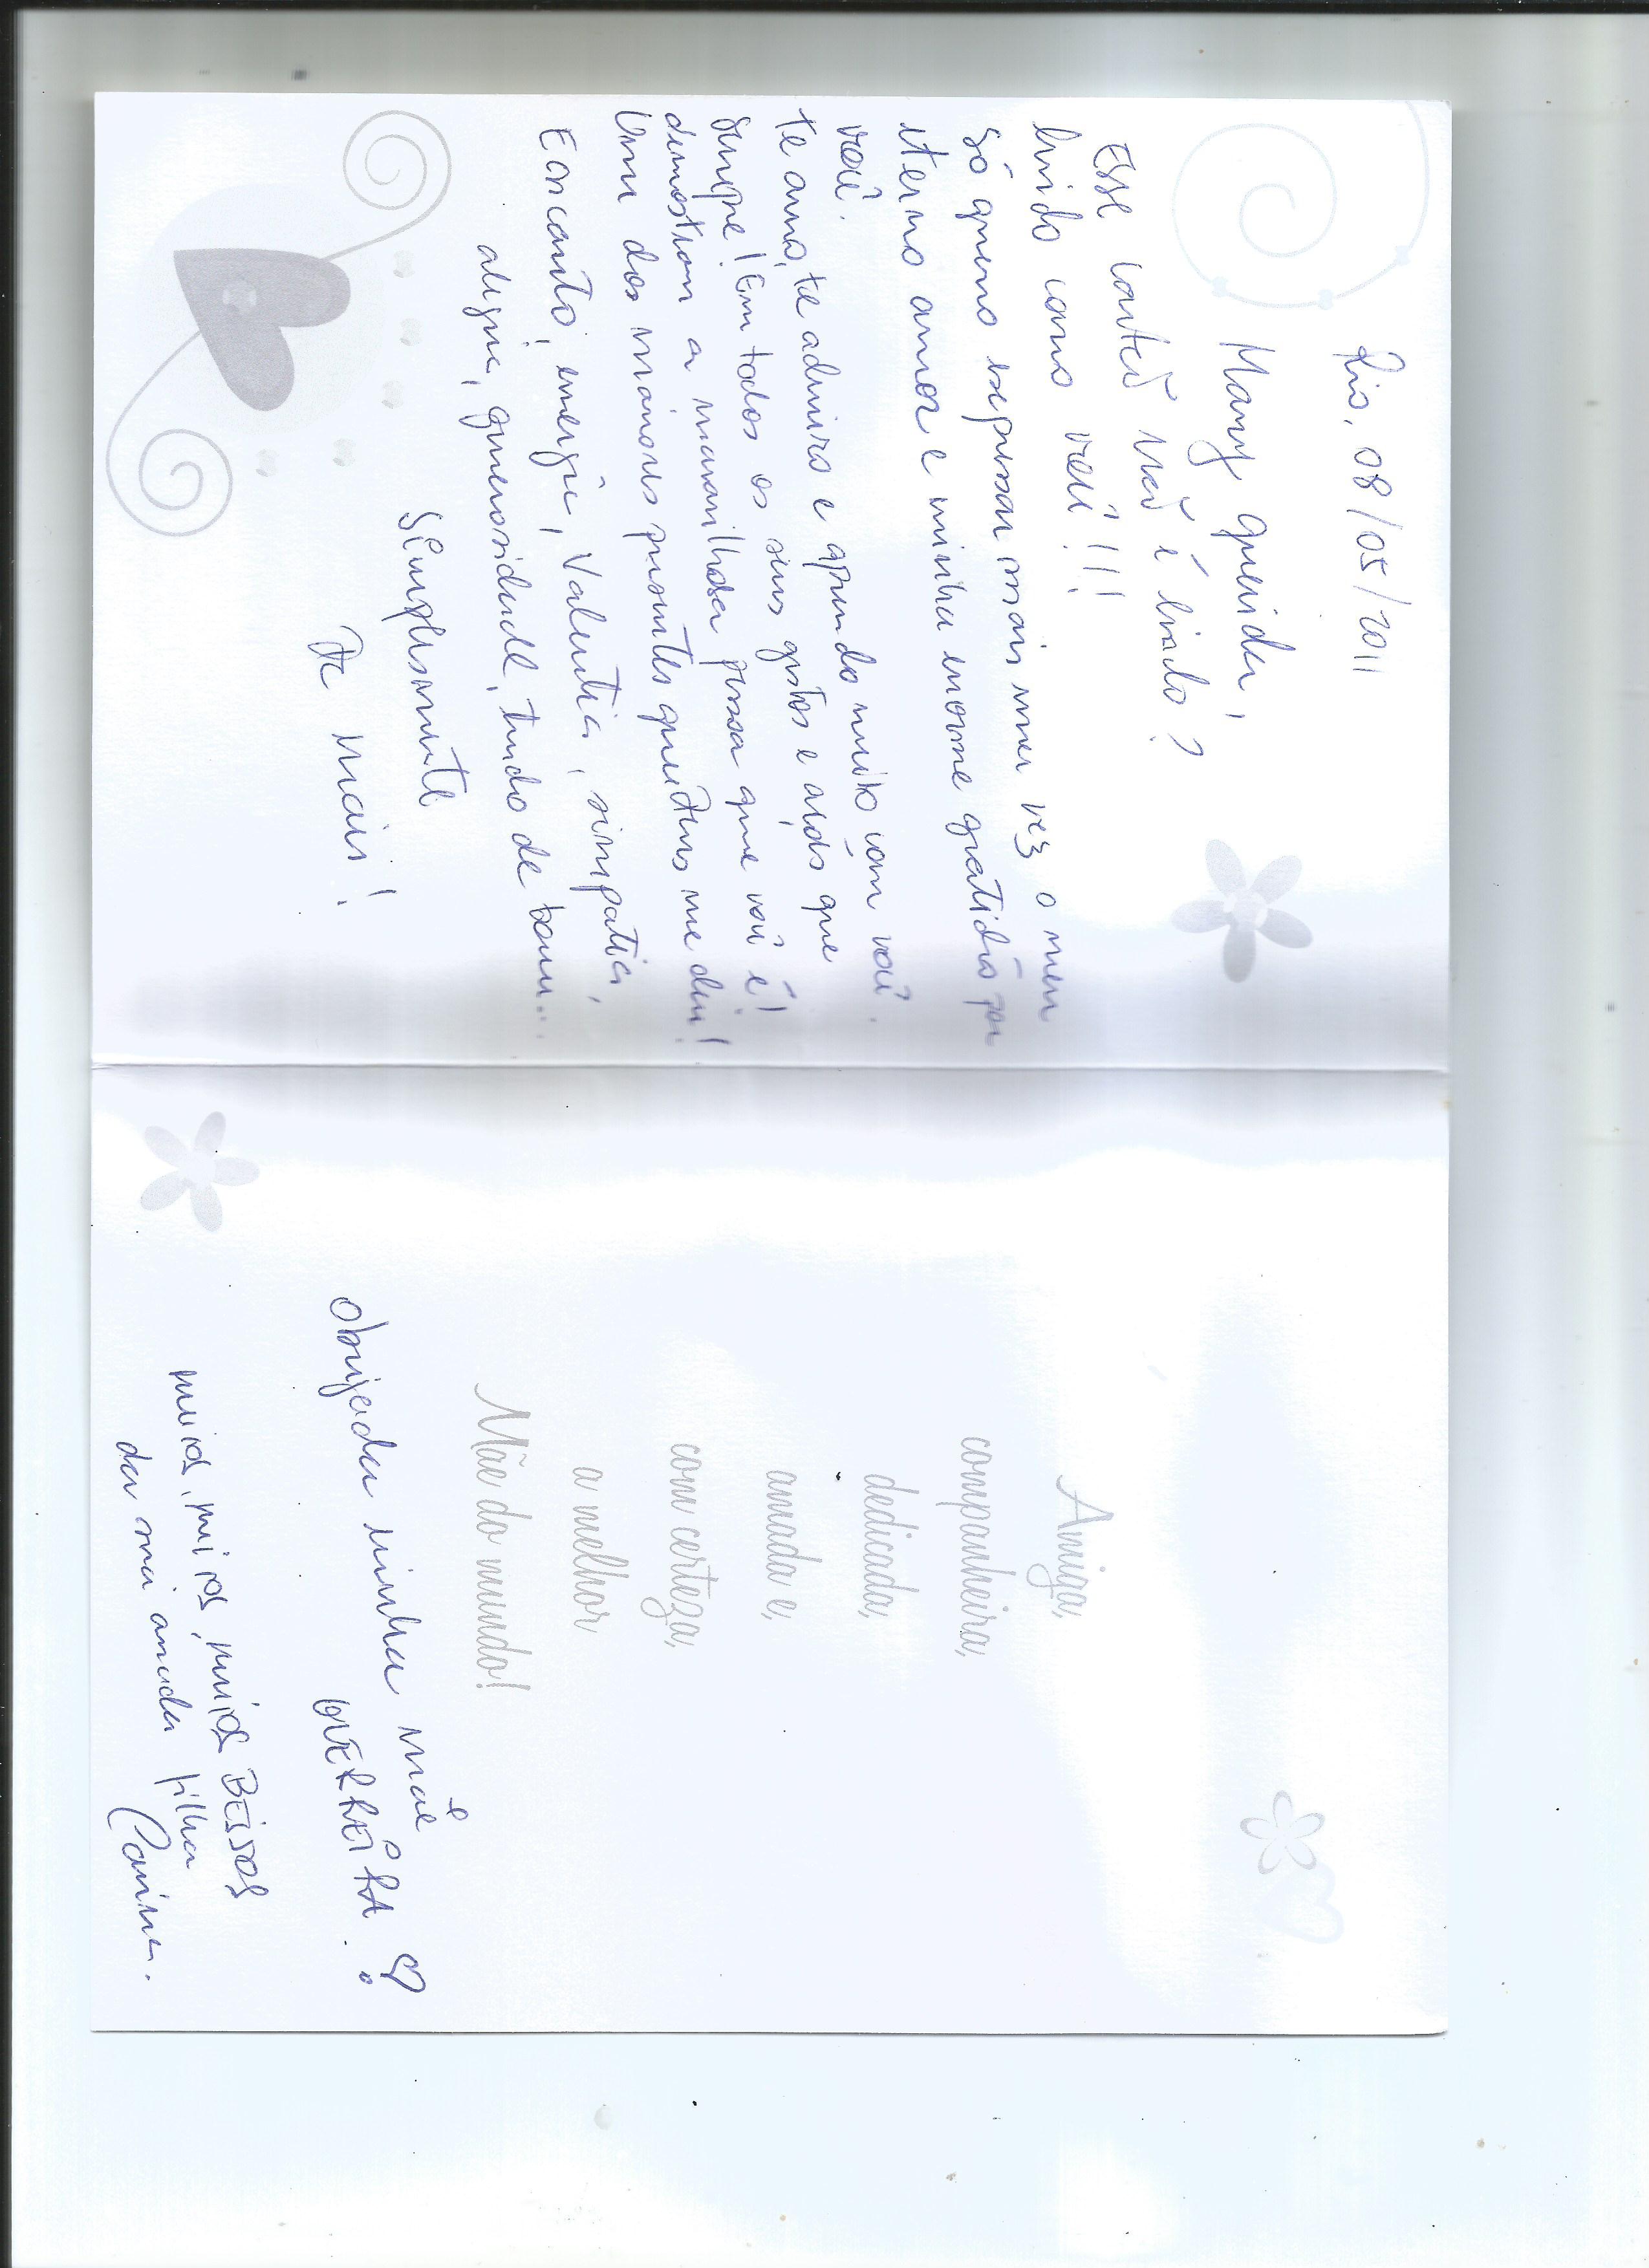 Rio, 08/05/2011
Mamy querida,
Esse cartão não é lindo?
lindo como você!!!
Só quero expressar mais uma vez o meu
eterno amor e minha enorme gratidão por
você.
te amo, te admiro e aprendo muito com você.
Sempre! Em todos os seus gestos e ações que
demostram a maravilhosa pessoa que você é!
Um dos maiores presentes que Deus me deu!
Encanto, energia, Valentia, simpatia,
alegria, generosidade, tudo de bom...
Simplesmente
De mais!
Amiga,
companheira,
dedicada,
amada e,
com certeza,
a melhor
Mãe do mundo!
Obrigada minha mãe
guERREIRA.
muitos, muitos, muitos BEIJOS
da sua amada filha